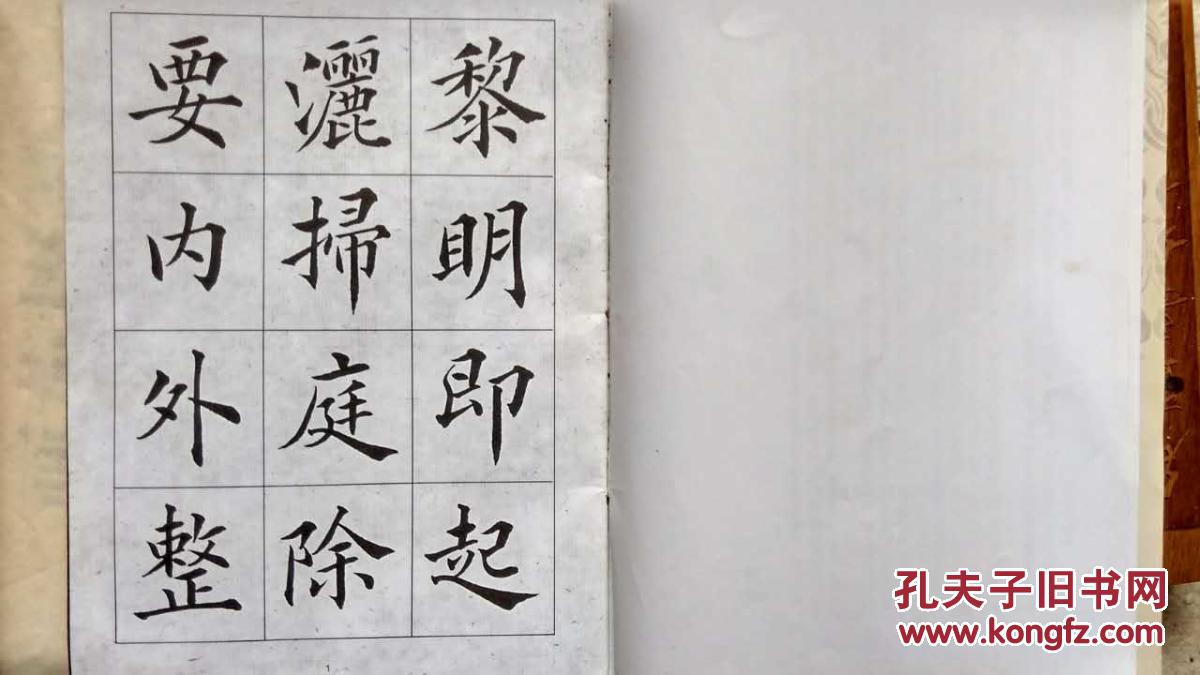 黎明即起
灑掃庭除
要内外整
1
孔夫子旧书网
www.kongfz.com